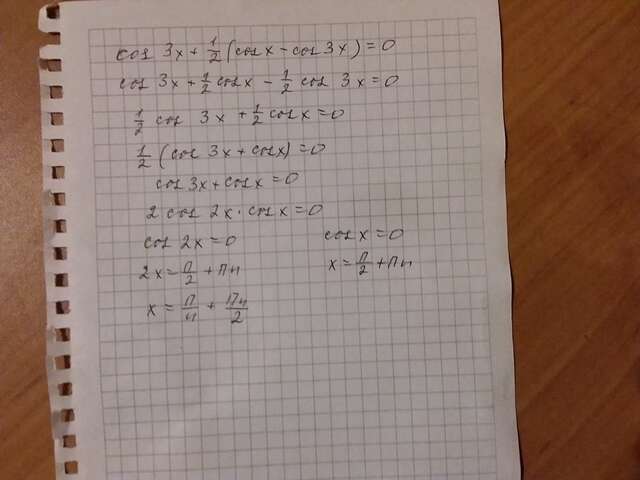 cos 3x + 1/2 (cos x - cos 3x) = 0
cos 3x + 1/2 cos x - 1/2 cos 3x = 0
1/2 cos 3x + 1/2 cos x = 0
1/2 (cos 3x + cos x) = 0
cos 3x + cos x = 0
2 cos 2x · cos x = 0
cos 2x = 0 cos x = 0
2x = π/2 + πn x = π/2 + πn
x = π/4 + πn/2